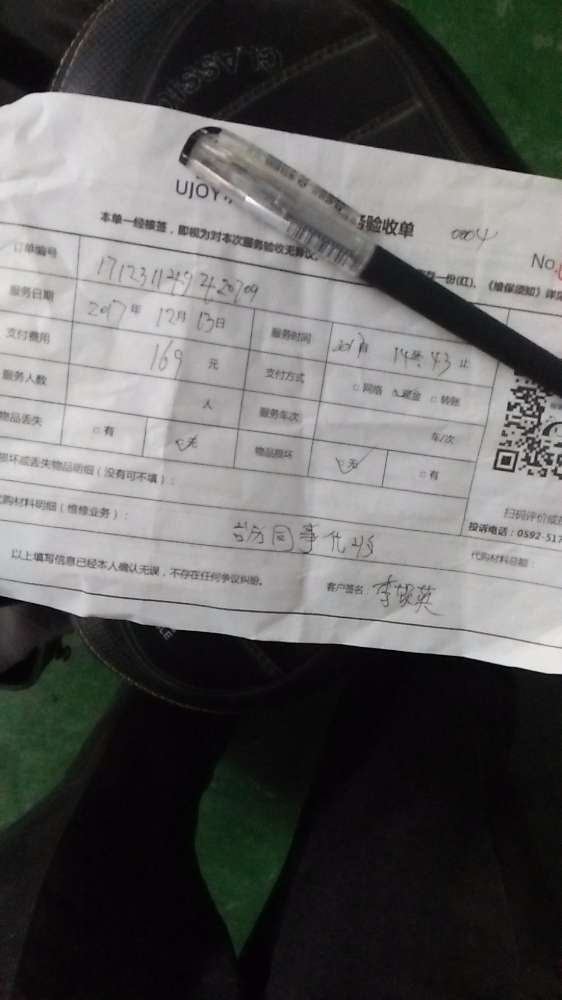 CLASSIC
UJOY
验收单 0004
No.
本单一经核签，即视为对本次服务验收无异议。
一份(红)、《维保须知》详
订单编号
服务日期 2017年 12月 13日 服务时间 14 43 止
支付费用 169 元 支付方式 □网络 现金 □转账
服务人数 人 服务车次 车/次
物品丢失 □有 无 物品损坏 无 □有
损坏或丢失物品明细（没有可不填）：
扫码评价或
代购材料明细（维修业务）： 投诉电话：0592-517
同事代 代购材料总额：
以上填写信息已经本人确认无误，不存在任何争议纠纷。 客户签名：李银英